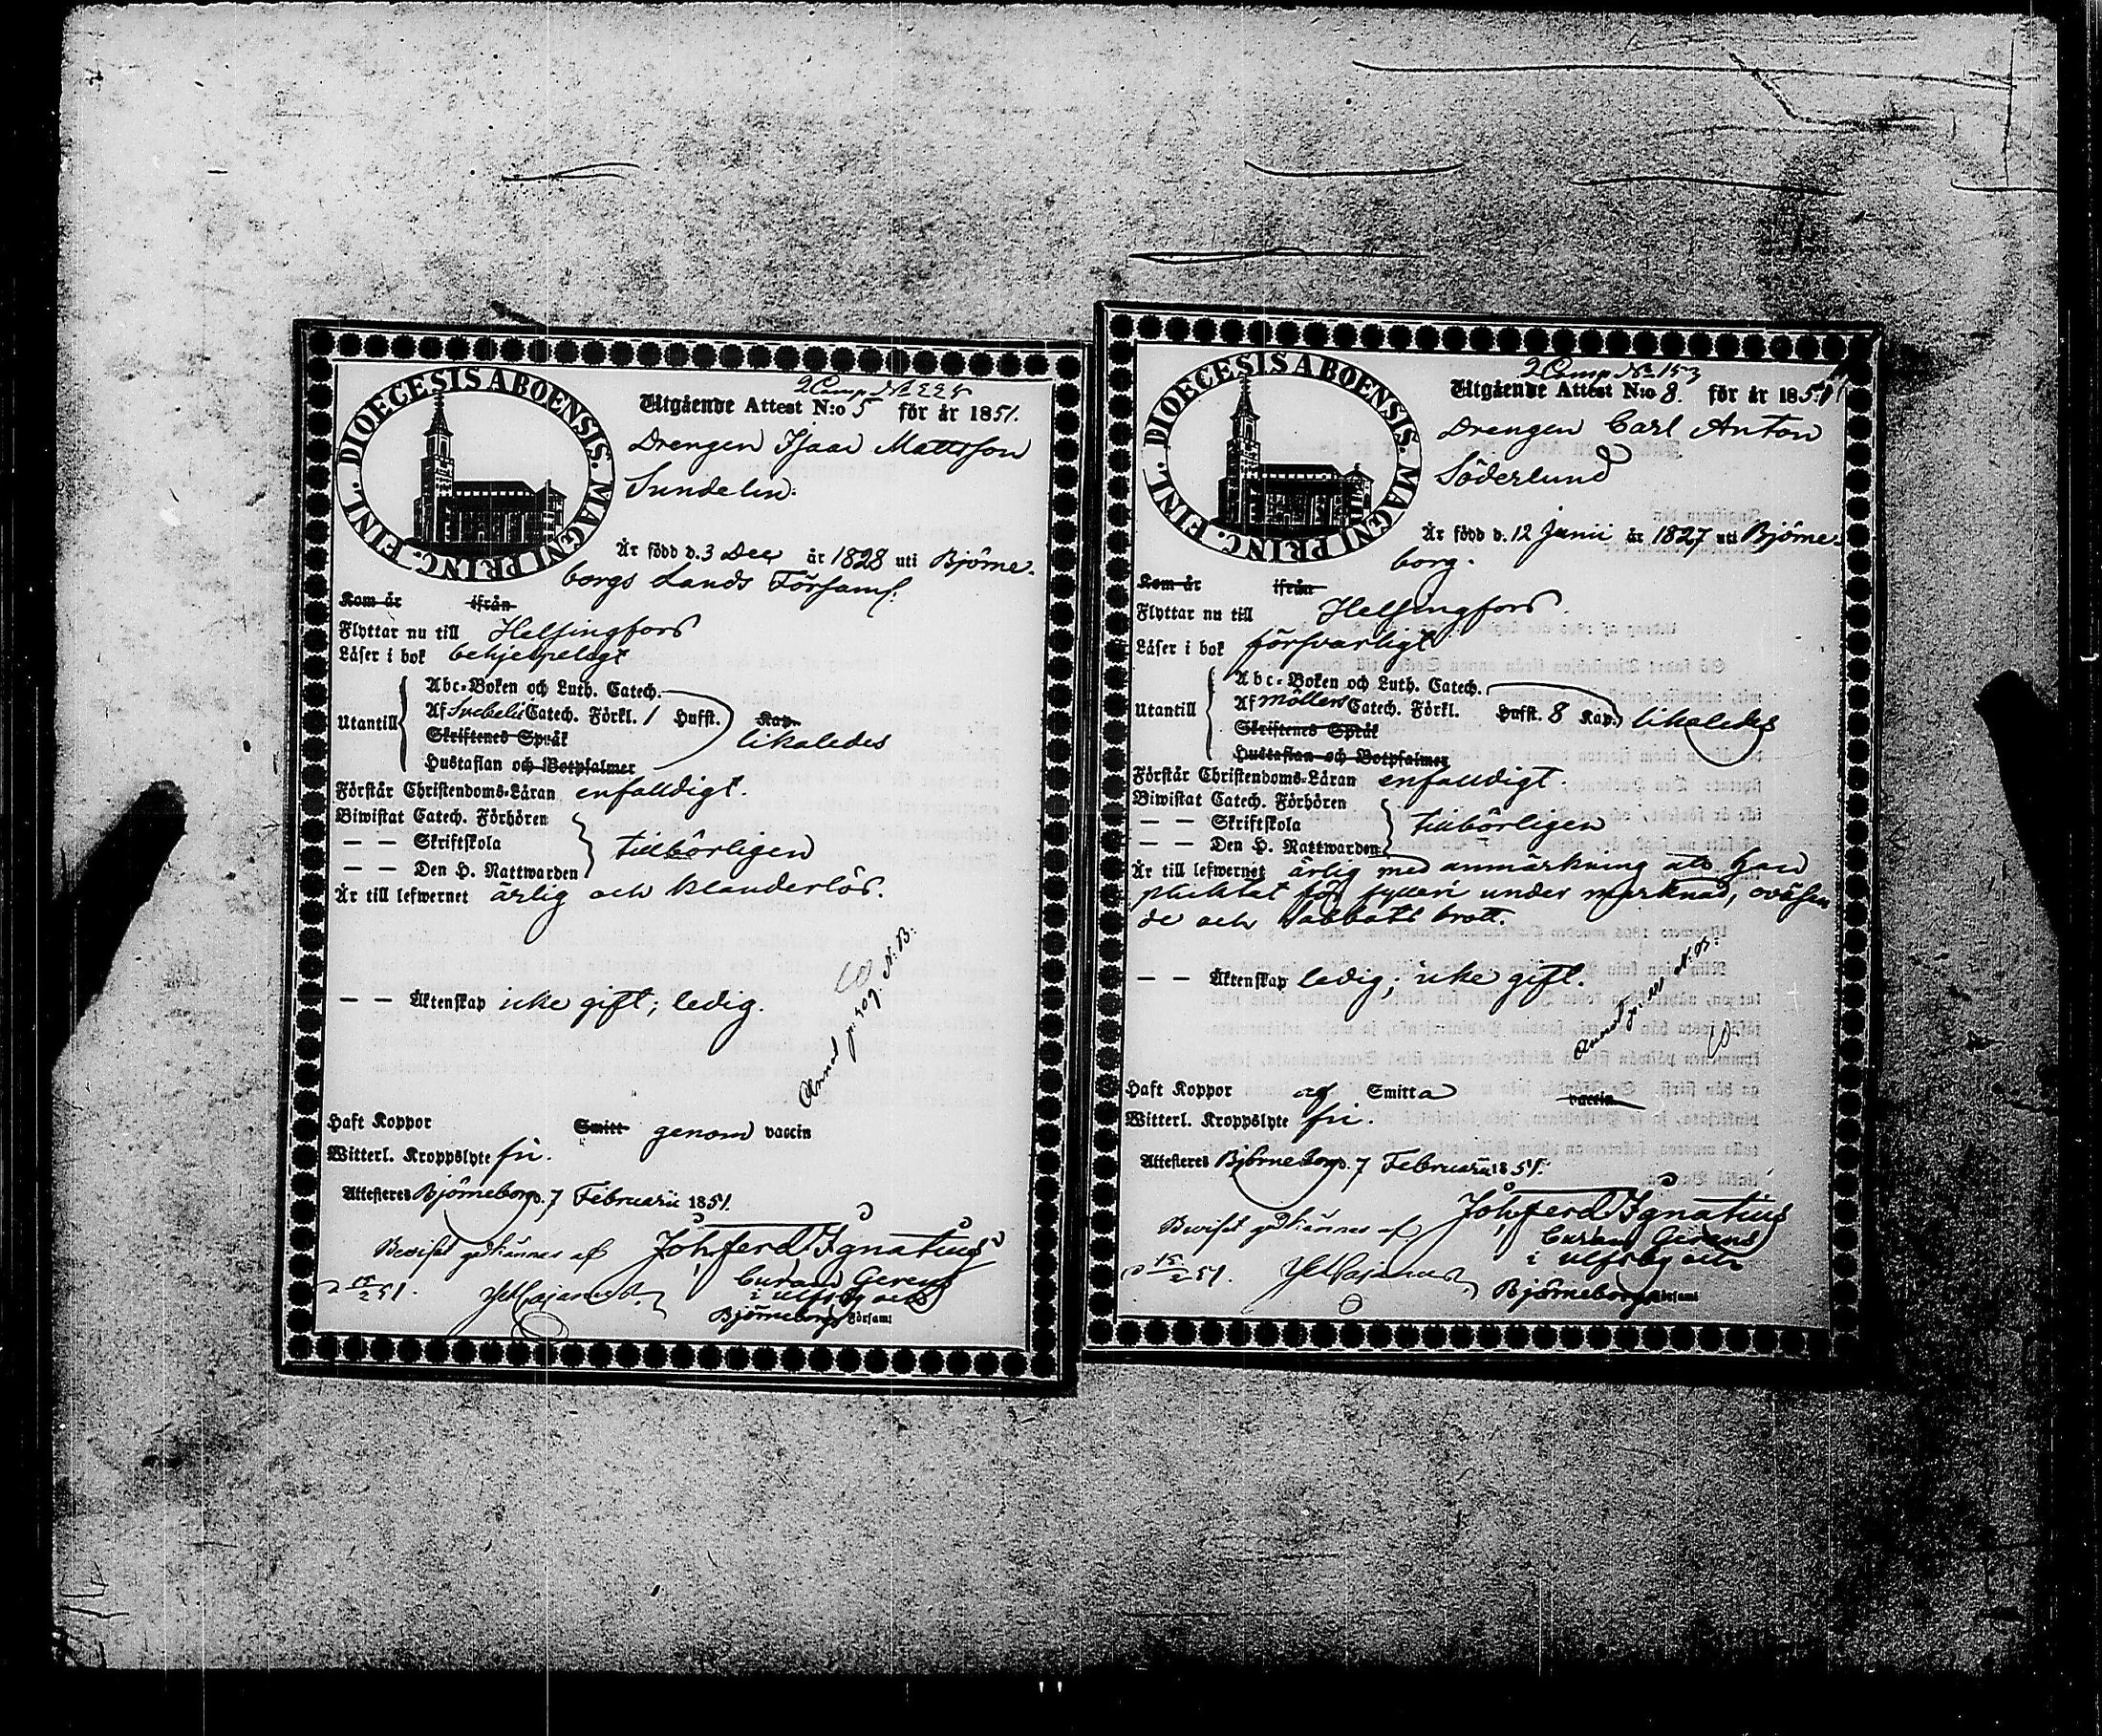 DIOECESIS ABOENSIS. MAGNI PRINC. FINL.
2 Comp No 225
Utgående Attest N:o 5 för år 1851.
Drengen Isaac Mattsson
Sundelin.
Är född d. 3 Dec år 1828 uti Björne-
borgs Lands Församl.
Kom år ifrån
Flyttar nu till Helsingfors
Läser i bok behjelpeligt
Abc-Boken och Luth. Catech.
Utantill Af Svebelii Catech. Förkl. 1 Hufst. Kap. likaledes
Skriftenes Språk
Hustaflan och Botpsalmer
Förstår Christendoms-Läran enfaldigt.
Biwistat Catech. Förhören
— — Skriftskola tillbörligen
— — Den H. Nattwarden
Är till lefwernet ärlig och klanderlös.
— — Äktenskap icke gift; ledig.
Annot. p. 209. N.B:
Haft Koppor Smitt genom vaccin
Witterl. Kroppslyte fri.
Attesteras Björneborg d. 7 Februarii 1851.
Beviset godkännes af Joh. Ferd. Ignatius
Curam Gerens
i Ulfsby och
Björneborgs Församl
DIOECESIS ABOENSIS. MAGNI PRINC. FINL.
2 Comp No 153
Utgående Attest N:o 8. för år 1851
Drengen Carl Anton
Söderlund
Är född d. 12 Junii år 1827 uti Björne-
borg.
Kom år ifrån
Flyttar nu till Helsingfors.
Läser i bok försvarligt
Abc-Boken och Luth. Catech.
Utantill Af Möllers Catech. Förkl. Hufst. 8 Kap. likaledes
Skriftenes Språk
Hustaflan och Botpsalmer
Förstår Christendoms-Läran enfaldigt.
Biwistat Catech. Förhören
— — Skriftskola tillbörligen
— — Den H. Nattwarden
Är till lefwernet ärlig med anmärkning att han
pliktat för fylleri under marknad, oväsen
de och sabbats brott.
— — Äktenskap ledig; icke gift.
Annot. p. N.B:
Haft Koppor af Smitta vaccin
Witterl. Kroppslyte fri.
Attesteras Björneborg d. 7 Februarii 1851.
Beviset godkännes af Joh. Ferd. Ignatius
Curam Gerens
i Ulfsby och
Björneborgs Församl